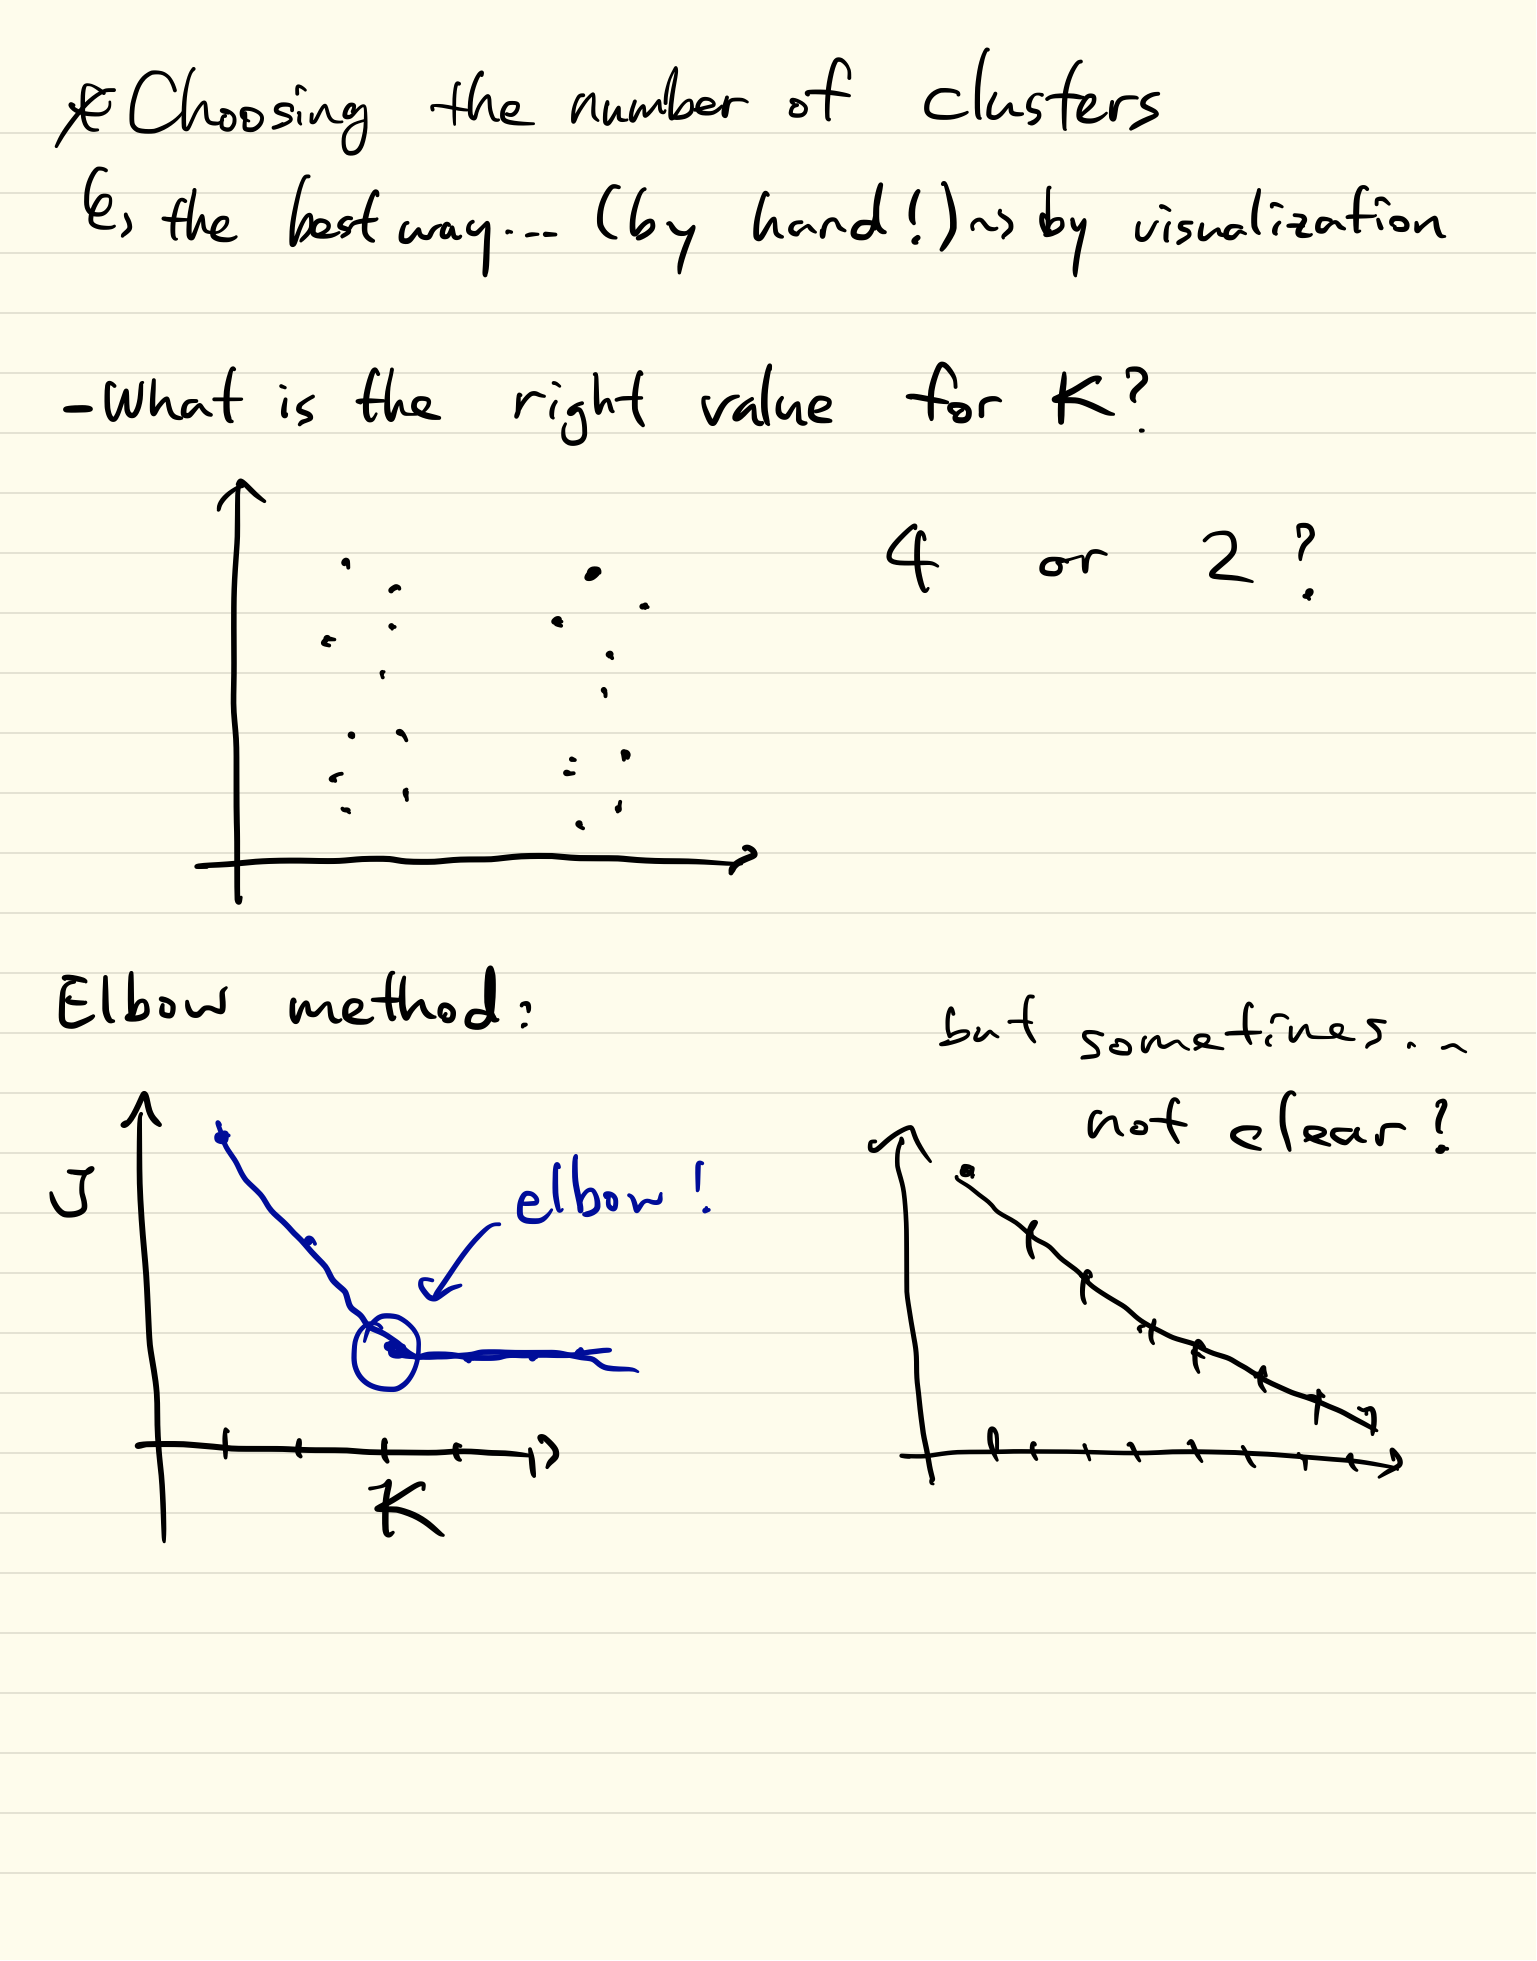 * Choosing the number of clusters
↳ the best way... (by hand!) ~> by visualization
- What is the right value for K?
4 or 2?
Elbow method:
but sometimes...
not clear!
J
elbow!
K